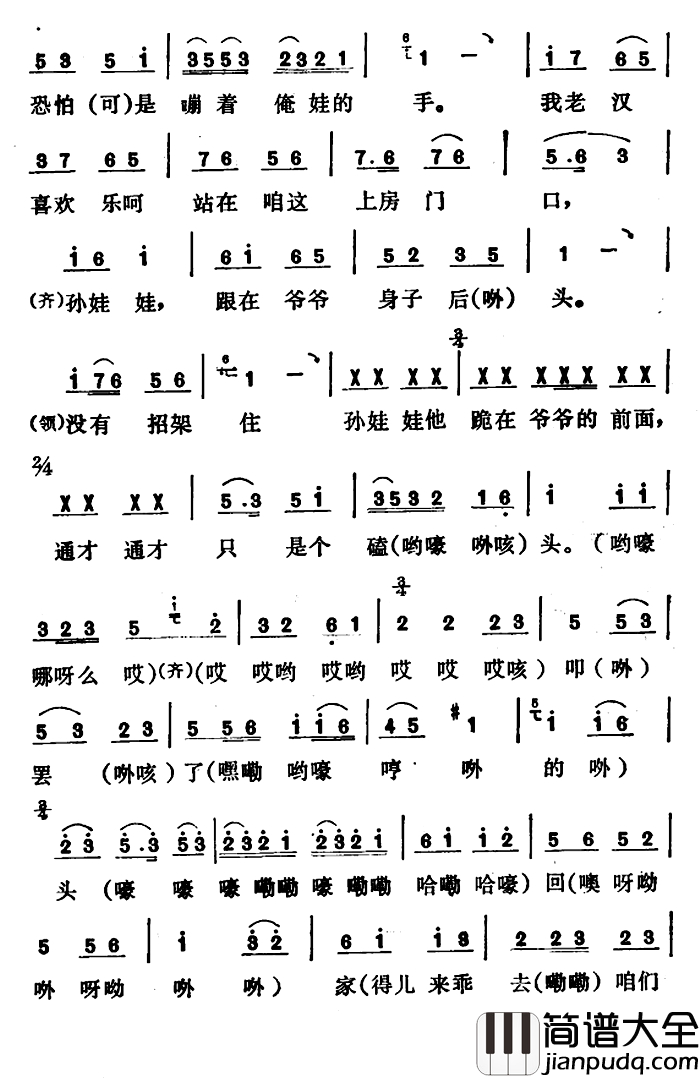 5 3 5 i | 3553 2321 | 1 — | i 7 6 5 |
恐怕(可)是 嘣着 俺娃的 手。 我老汉
3 7 6 5 | 7 6 5 6 | 7. 6 7 6 | 5. 6 3 |
喜欢 乐呵 站在 咱这 上房门 口,
i 6 i | 6 i 6 5 | 5 2 3 5 | i — |
(齐)孙娃 娃, 跟在 爷爷 身子 后(咻)头。
3/4
i 76 5 6 | 1 — | X X X X | X X X X X X X |
(领)没有 招架 住 孙娃 娃他 跪在 爷爷的 前面,
2/4
X X X X | 5. 3 5 i | 3532 1 6 | i i i |
通才 通才 只 是个 磕(哟嚎 咻咳)头。(哟嚎
3/4
3 23 5 2 | 3 2 6 1 | 2 2 2 3 | 5 5 3 |
哪呀么 哎)(齐)(哎 哎哟 哎哟 哎 哎 哎咳)叩(咻)
5 3 2 3 | 5 56 i i6 | 4 5 #1 | i i 6 |
罢 (咻咳)了(嘿嘞 哟嚎 哼 咻 的 咻)
3/4
2 3 5. 3 5 3 | 2321 2321 | 6 i i 2 | 5 6 5 2 |
头 (嚎 嚎 嚎 嘞嘞 嚎 嘞嘞 哈嘞 哈嚎)回(噢 呀呦
5 5 6 | i 3 2 | 6 i i 3 | 2 2 3 2 3 |
咻 呀呦 咻 咻) 家(得儿 来乖 去(嘞嘞)咱们
简谱大全
jianpudq.com